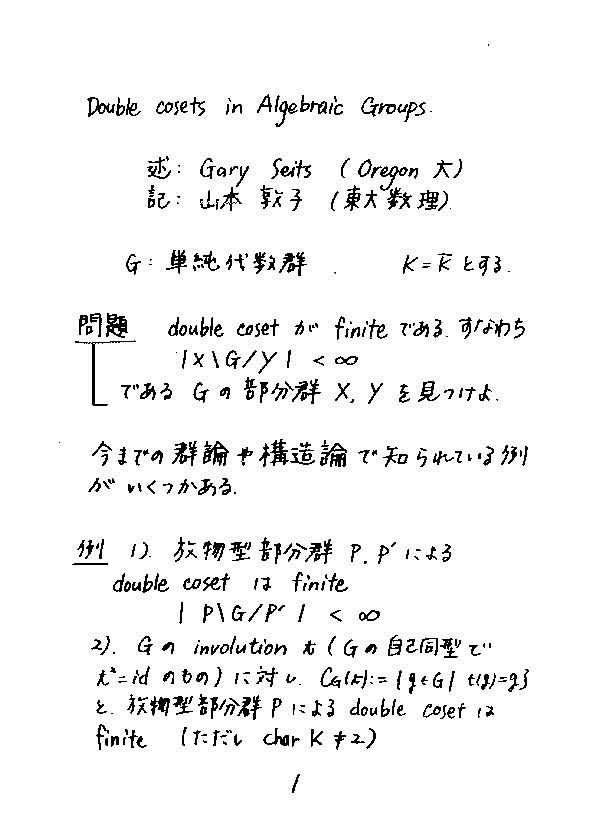 Double cosets in Algebraic Groups.
述: Gary Seits (Oregon 大)
記: 山本 敦子 (東大数理)
G: 単純代数群. K = K̄ とする.
問題 double coset が finite である. すなわち
|X\G/Y| < ∞
である G の部分群 X, Y を見つけよ.
今までの群論や構造論で知られている例
がいくつかある.
例 1). 放物型部分群 P, P′ による
double coset は finite
|P\G/P′| < ∞
2). G の involution t (G の自己同型で
t²=id のもの) に対し. C_G(t):= {g∈G| t(g)=g}
と. 放物型部分群 P による double coset は
finite (ただし char K ≠ 2)
1